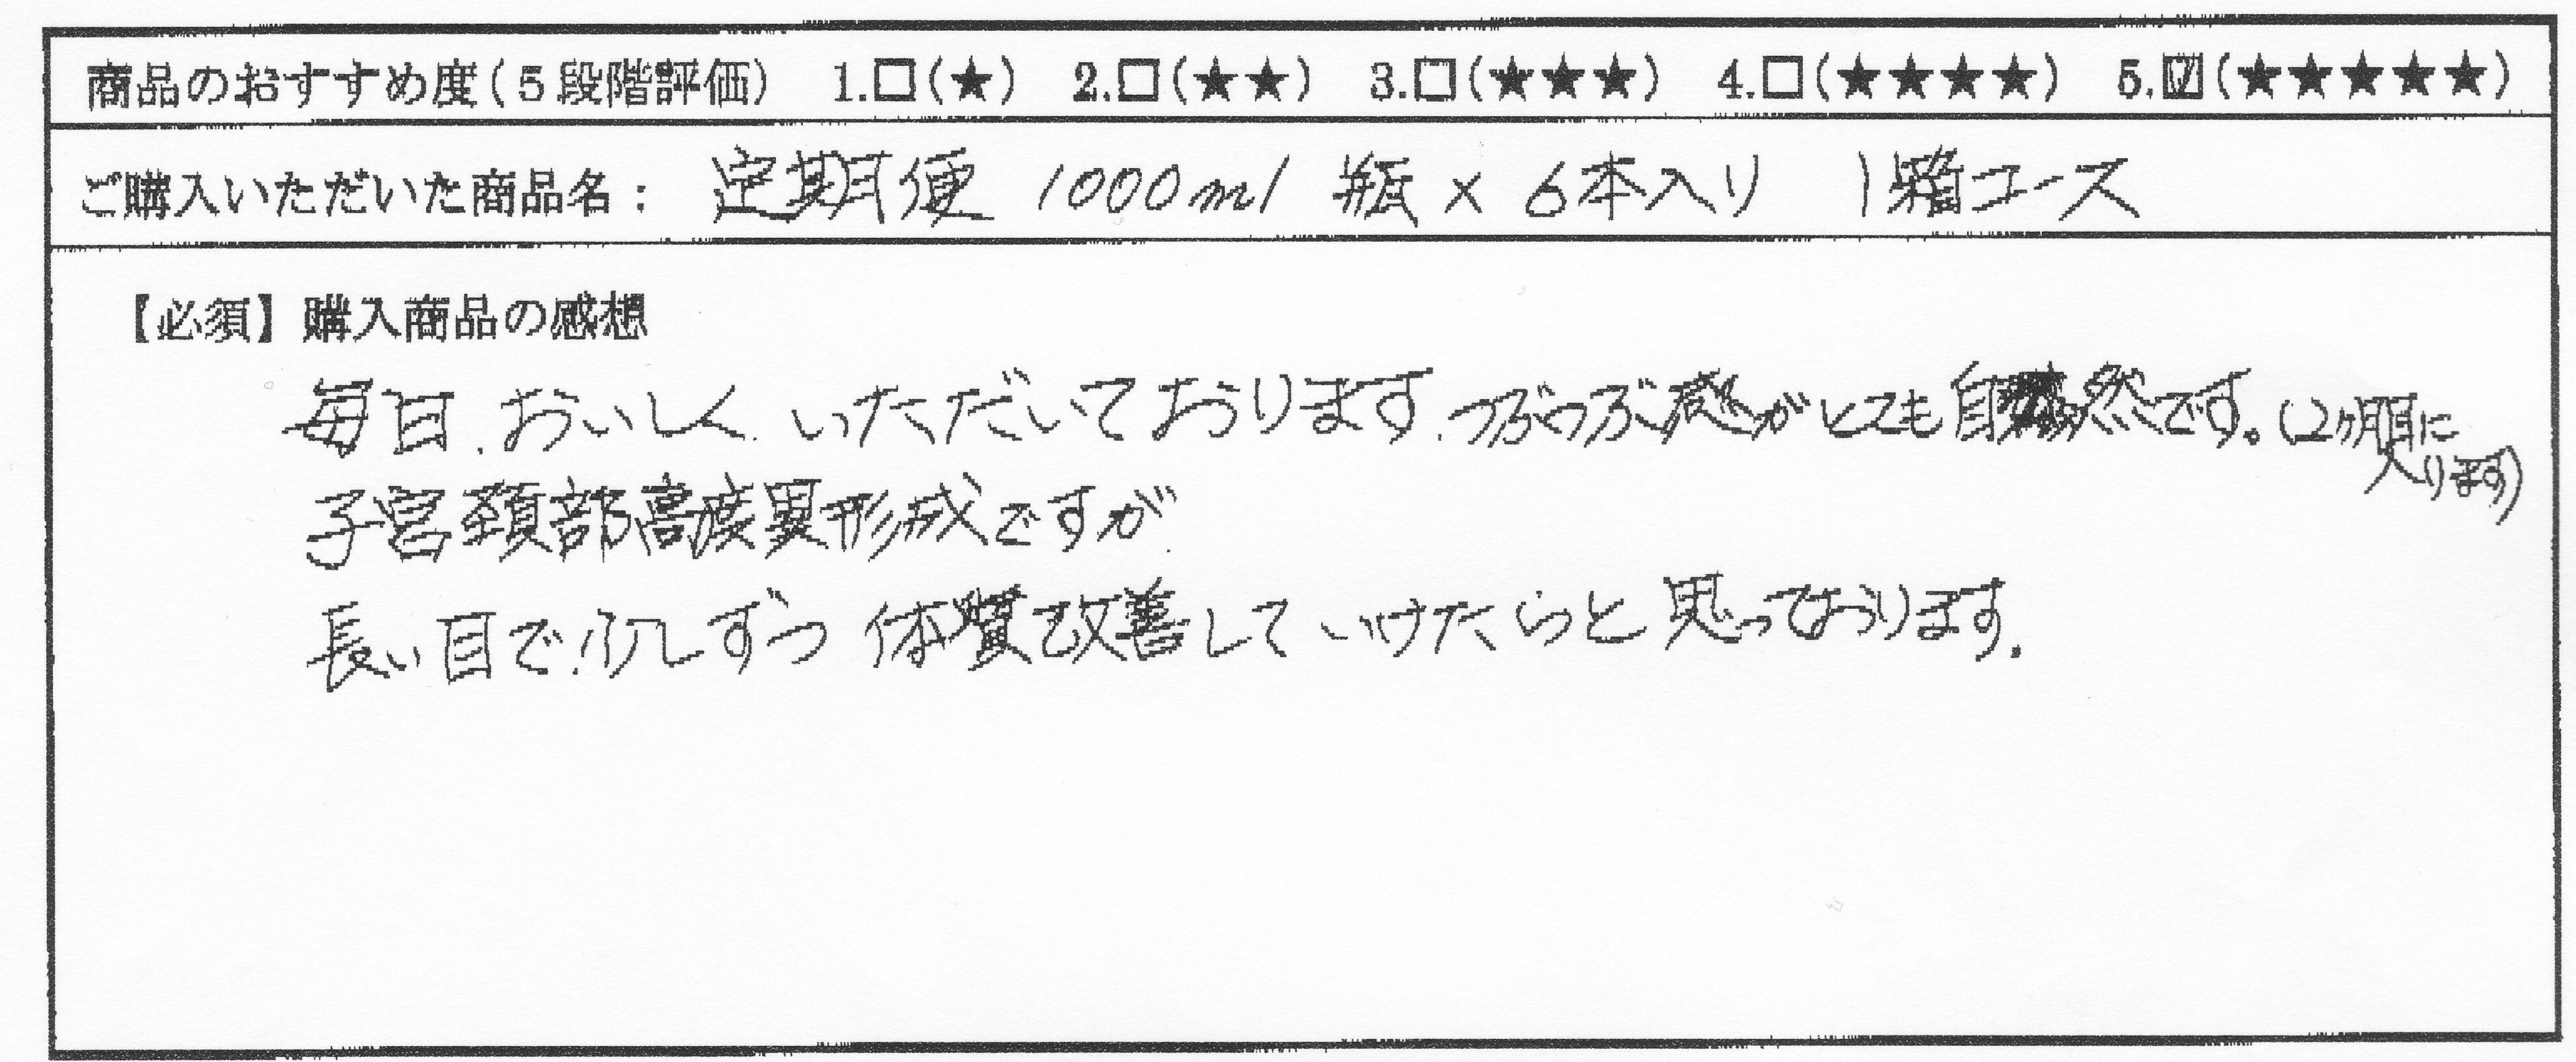 商品のおすすめ度(5段階評価) 1.□(★) 2.□(★★) 3.□(★★★) 4.□(★★★★) 5.☑(★★★★★)
ご購入いただいた商品名: 定期便 1000ml 瓶 × 6本入り 1箱コース
【必須】購入商品の感想
毎日、おいしく、いただいております、つぶつぶ感がとても自然です。(2ヶ月目に
入ります)
子宮頚部高度異形成ですが、
長い目で少しずつ 体質改善して いけたらと 思っております。